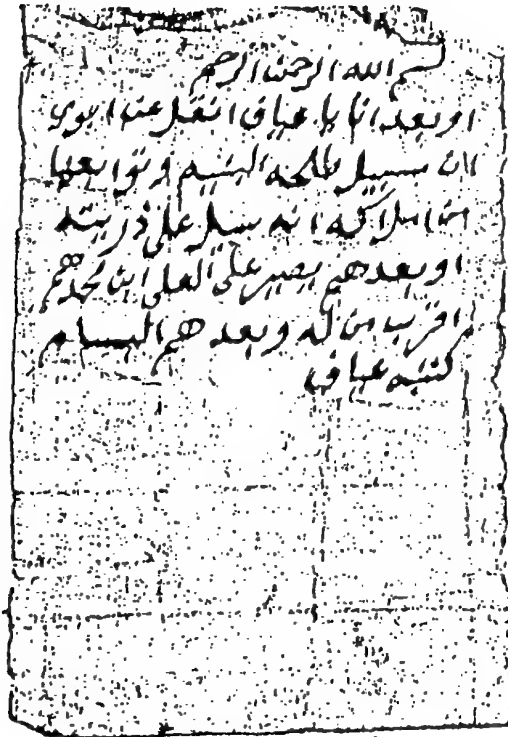 بسم الله الرحمن الرحيم
او بعد انا يا عياف انقل عن ابوي
ان سبيل طلحه اليتيم و توابعها
من املاكه انه سبيل على ذريته
او بعدهم يصير على العلي ابن محمد هم
اقرب من له و بعدهم البسام
كتبه عياف